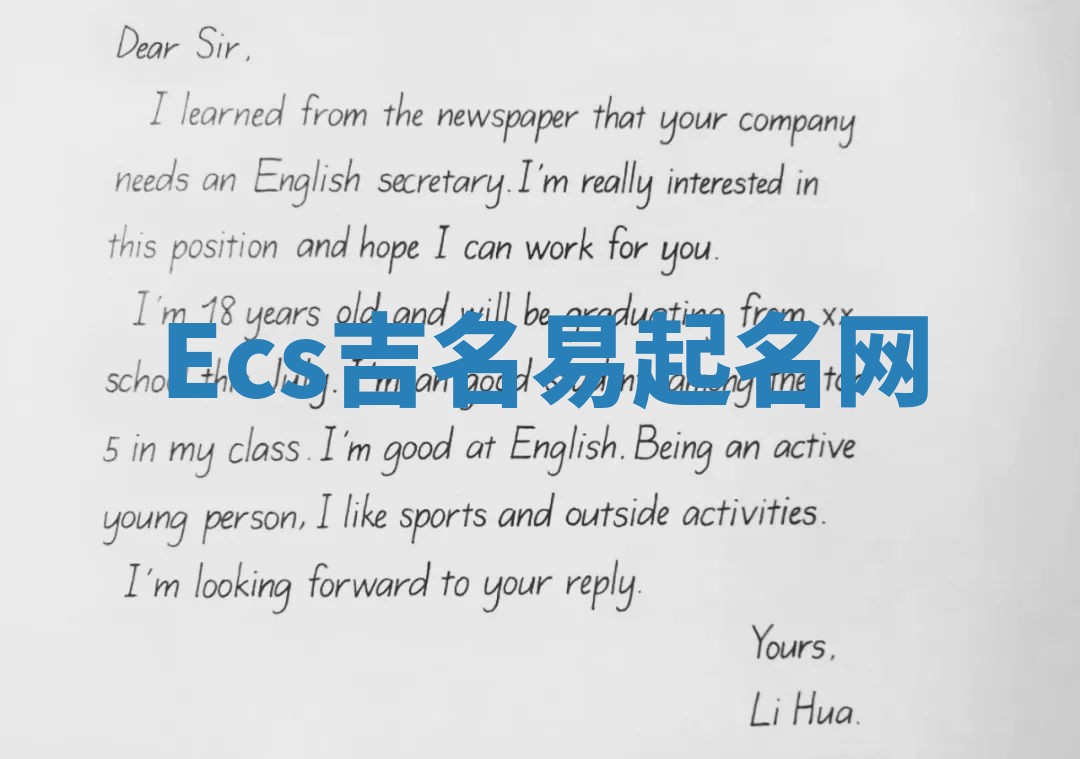 Dear Sir,
I learned from the newspaper that your company
needs an English secretary. I'm really interested in
this position and hope I can work for you.
I'm 18 years old and will be graduating from xx
Ecs吉名易起名网
school this July. I'm a good student among the top
5 in my class. I'm good at English. Being an active
young person, I like sports and outside activities.
I'm looking forward to your reply.
Yours,
Li Hua.